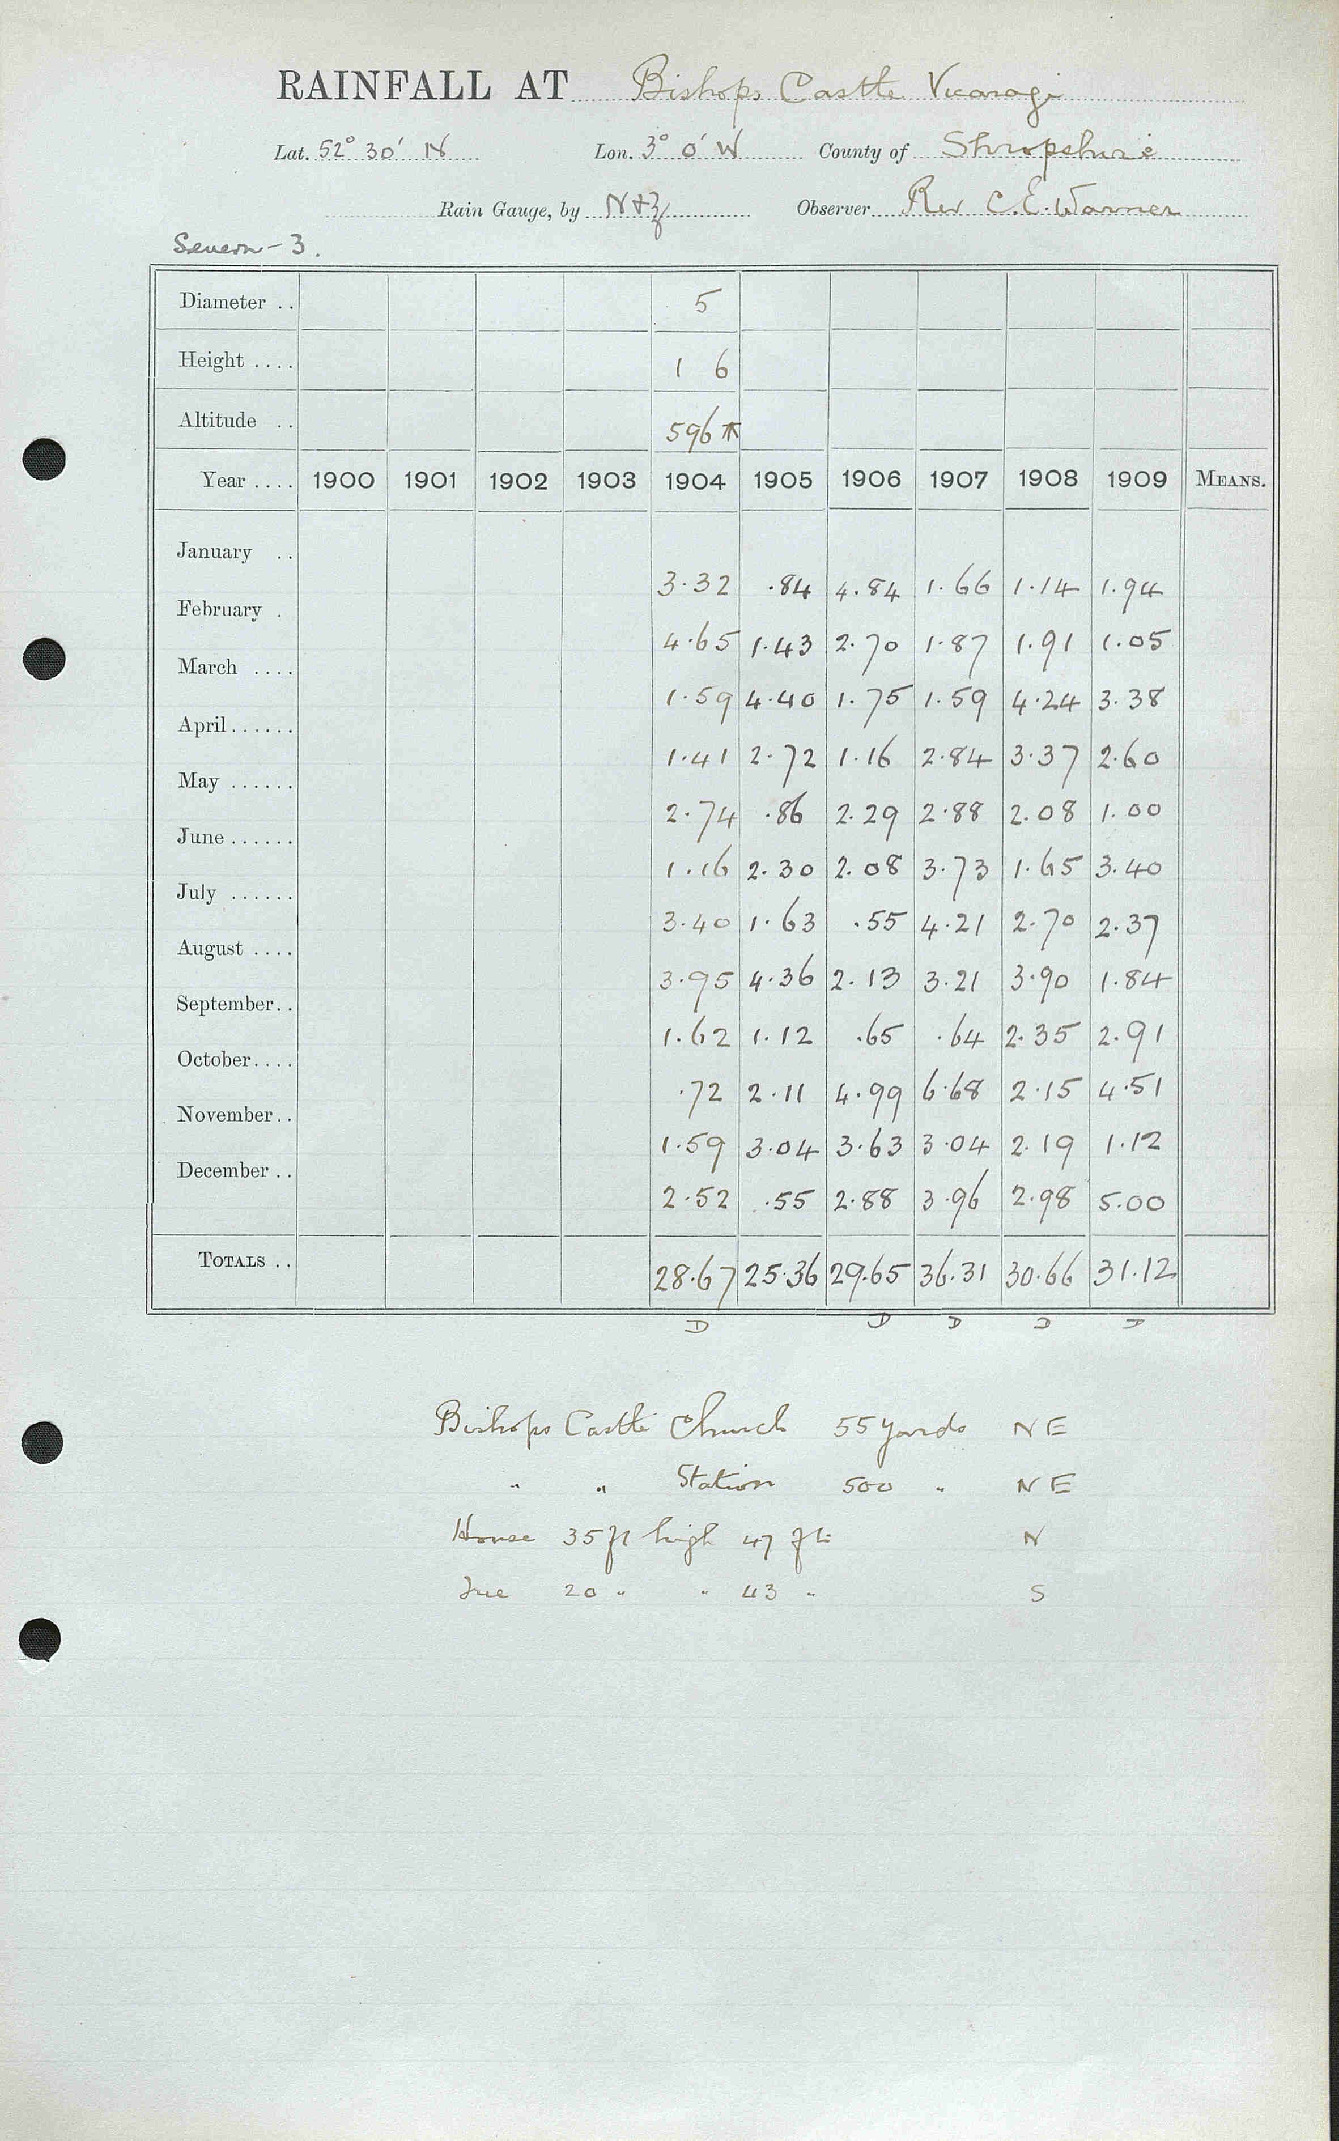 RAINFALL AT Bishops Castle Vicarage
Lat. 52° 30' N Lon. 3° 0' W County of Shropshire
Rain Gauge, by N+Z Observer Rev C.E. Warner
Severn - 3.
Diameter .. 5
Height .... 1 6
Altitude .. 596 ft
Year .... 1900 1901 1902 1903 1904 1905 1906 1907 1908 1909 MEANS.
January .. 3.32 .84 4.84 1.66 1.14 1.94
February . 4.65 1.43 2.70 1.87 1.91 1.05
March .... 1.59 4.40 1.75 1.59 4.24 3.38
April...... 1.41 2.72 1.16 2.84 3.37 2.60
May ...... 2.74 .86 2.29 2.88 2.08 1.00
June ...... 1.16 2.30 2.08 3.73 1.65 3.40
July ...... 3.40 1.63 .55 4.21 2.70 2.37
August .... 3.95 4.36 2.13 3.21 3.90 1.84
September.. 1.62 1.12 .65 .64 2.35 2.91
October.... .72 2.11 4.99 6.68 2.15 4.51
November.. 1.59 3.04 3.63 3.04 2.19 1.12
December .. 2.52 .55 2.88 3.96 2.98 5.00
TOTALS .. 28.67 25.36 29.65 36.31 30.66 31.12
D D D D D
Bishops Castle Church 55 yards NE
" " Station 500 " NE
House 35 ft high 47 ft N
Tree 20 " " 43 " S